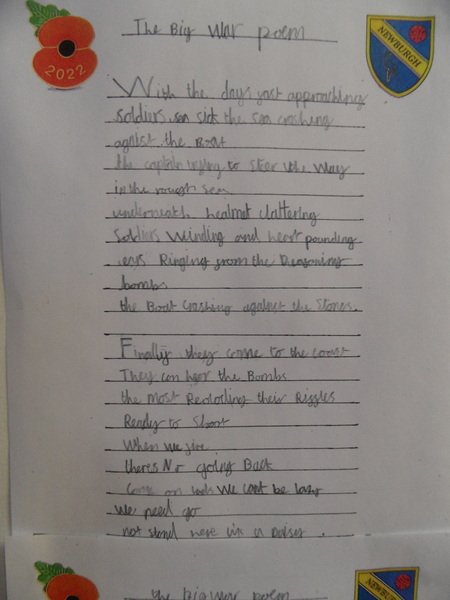 2022
The Big War poem
NEWBURGH
With the days past approaching
soldiers sea sick the sea crashing
against the Boat
the captain trying to steer the way
in the rough sea
underneath helmat clattering
Soldiers winding and heart pounding
ears Ringing from the
bombs
the Boat Crashing against the Stones.
Finally they come to the coast
They can hear the Bombs
the most Reloding their Riggles
Ready to Shoot
When we
theres No going Back
Come on lads We cant be lazy
We need go
not stand here
the big war poem
NEWBURGH